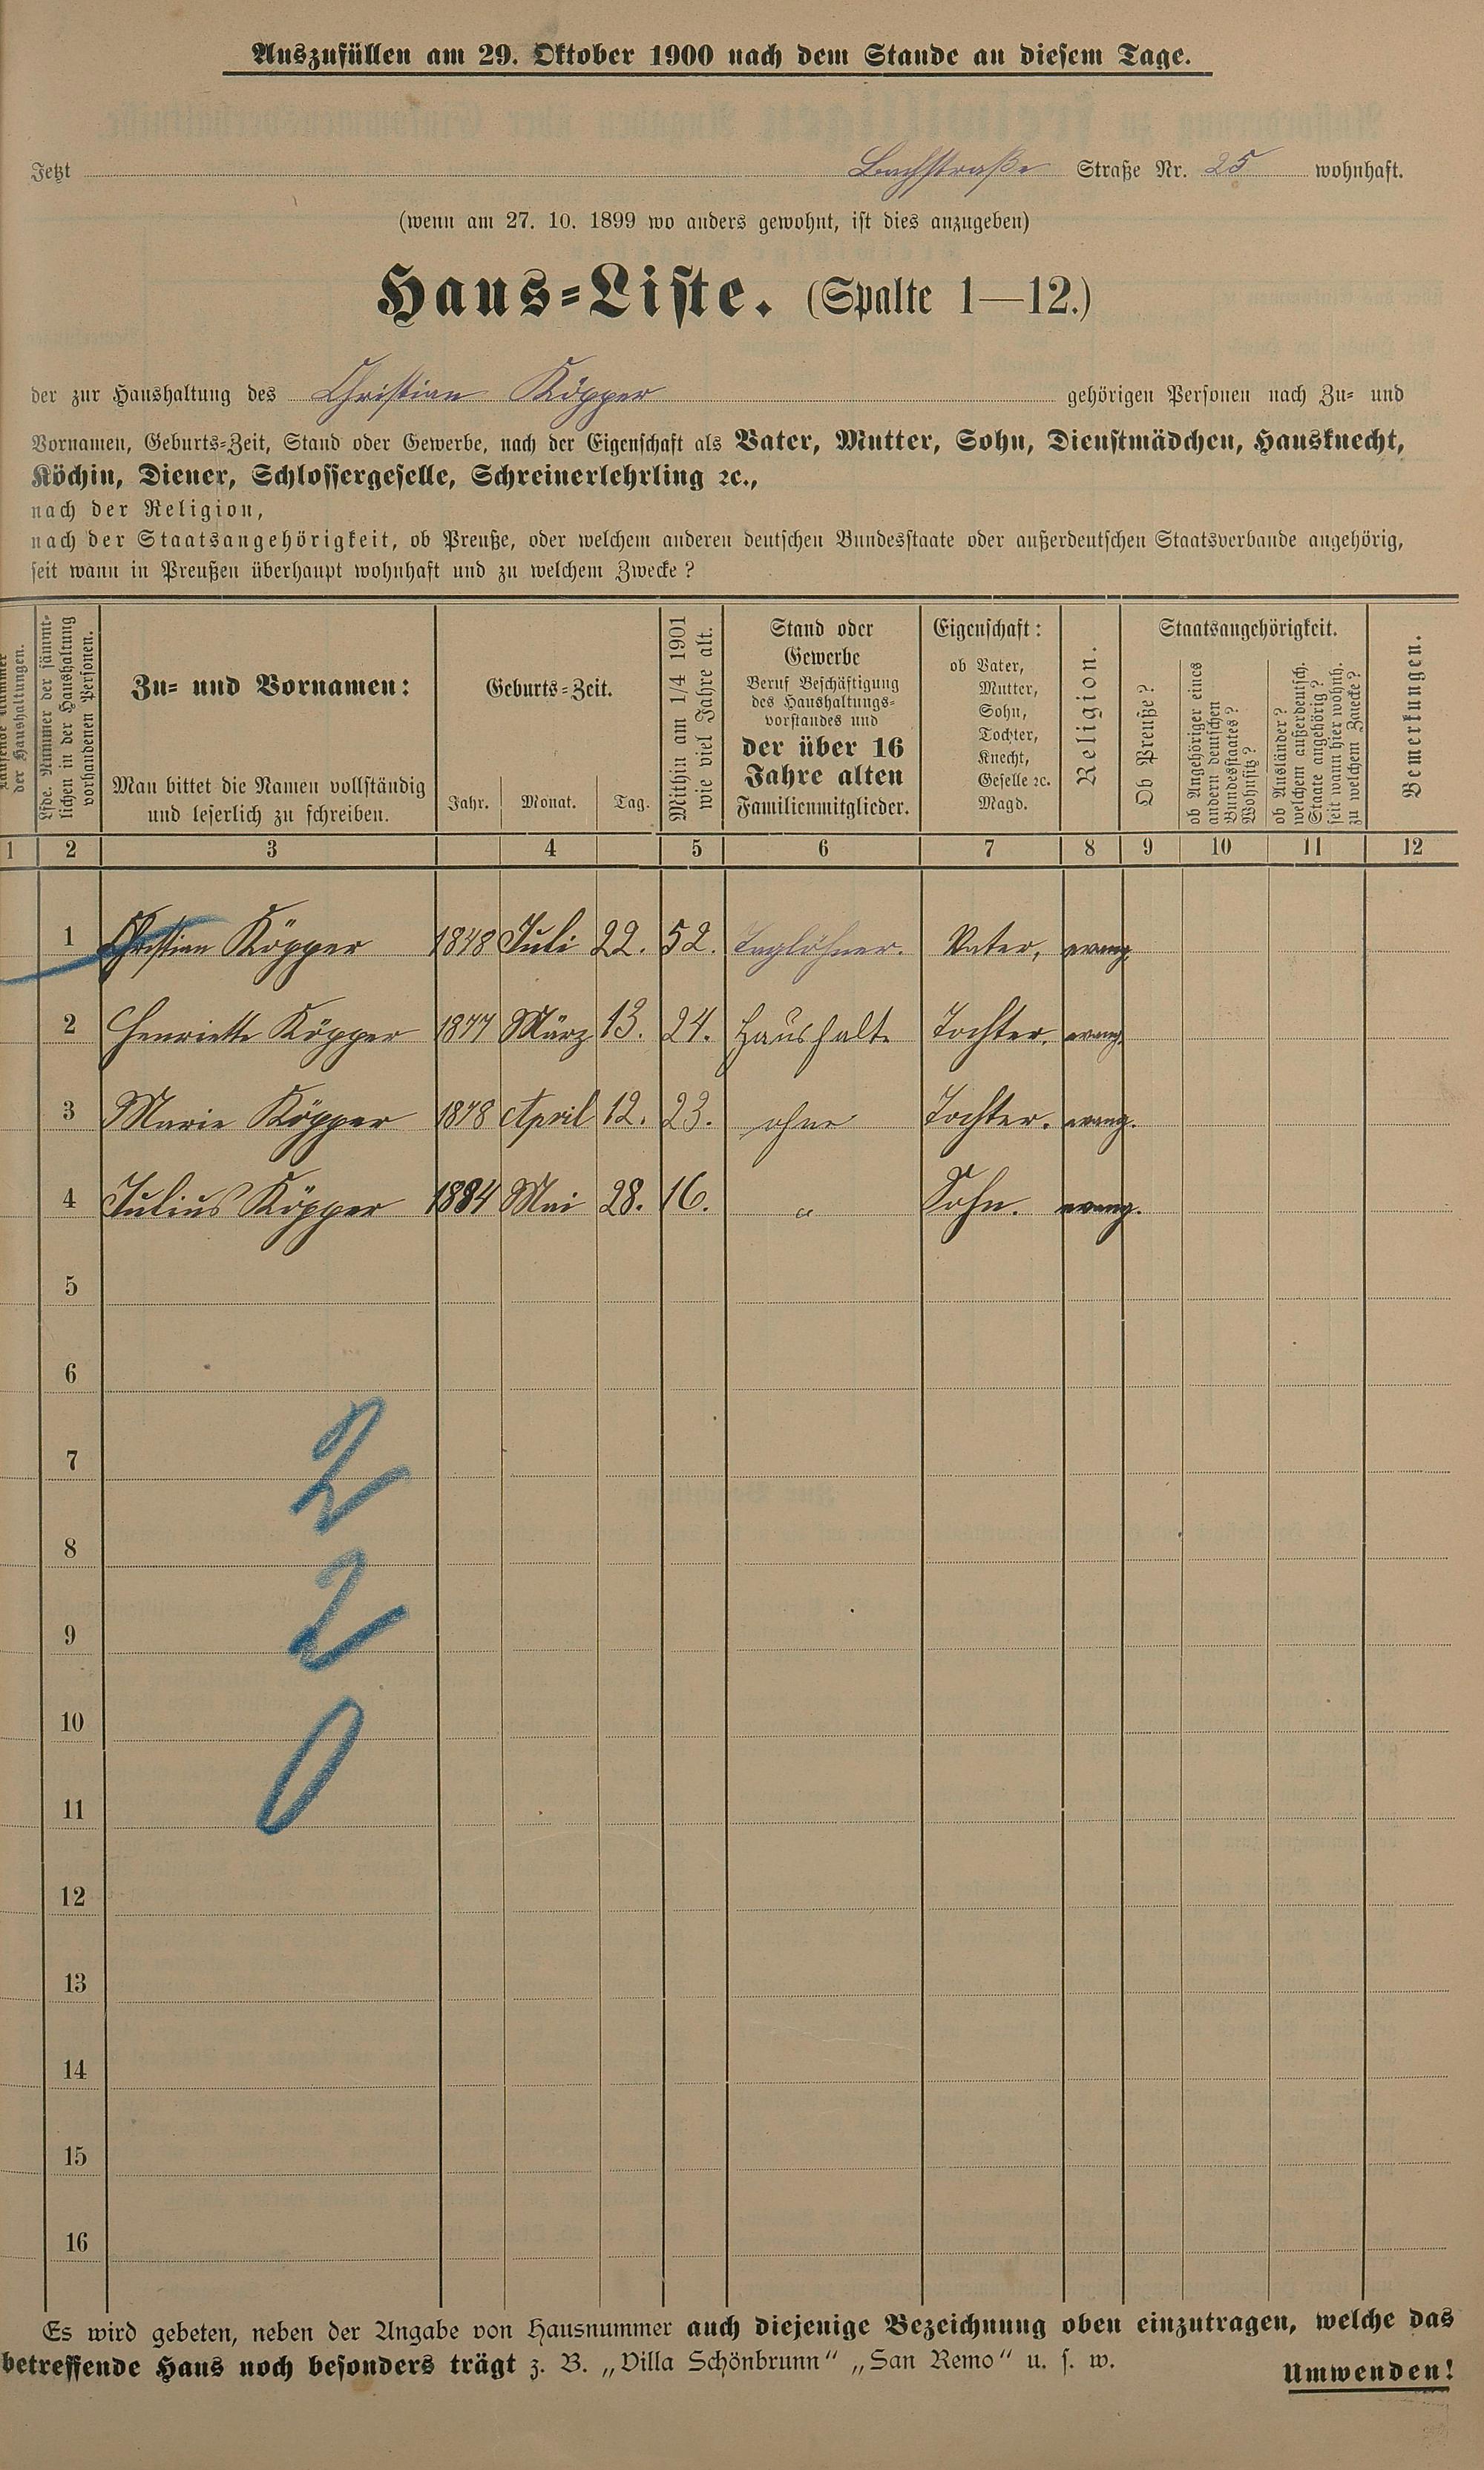 Auszufüllen am 29. Oktober 1900 nach dem Stande an diesem Tage.
Jetzt Bachstraße Straße Nr. 25 wohnhaft.
(wenn am 27. 10. 1899 wo anders gewohnt, ist dies anzugeben)
Haus-Liste. (Spalte 1—12.)
der zur Haushaltung des Christian Köpper gehörigen Personen nach Zu- und
Vornamen, Geburts-Zeit, Stand oder Gewerbe, nach der Eigenschaft als Vater, Mutter, Sohn, Dienstmädchen, Hausknecht,
Köchin, Diener, Schlossergeselle, Schreinerlehrling ꝛc.,
nach der Religion,
nach der Staatsangehörigkeit, ob Preuße, oder welchem anderen deutschen Bundesstaate oder außerdeutschen Staatsverbande angehörig,
seit wann in Preußen überhaupt wohnhaft und zu welchem Zwecke?
Laufende Nummer
der Haushaltungen.
Lfde. Nummer der sämmt-
lichen in der Haushaltung
vorhandenen Personen.
Zu- und Vornamen:
Man bittet die Namen vollständig
und leserlich zu schreiben.
Geburts-Zeit.
Jahr. Monat. Tag.
Mithin am 1/4 1901
wie viel Jahre alt.
Stand oder
Gewerbe
Beruf Beschäftigung
des Haushaltungs-
vorstandes und
der über 16
Jahre alten
Familienmitglieder.
Eigenschaft:
ob Vater,
Mutter,
Sohn,
Tochter,
Knecht,
Geselle ꝛc.
Magd.
Religion.
Staatsangehörigkeit.
Ob Preuße?
ob Angehöriger eines
andern deutschen
Bundesstaates?
Wohnsitz?
ob Ausländer?
welchem außerdeutsch.
Staate angehörig?
seit wann hier wohnh.
zu welchem Zwecke?
Bemerkungen.
1 2 3 4 5 6 7 8 9 10 11 12
1 Christian Köpper 1848 Juli 22. 52. Taglöhner. Vater, evang.
2 Henriette Köpper 1877 März 13. 24. Haushalt. Tochter. evang.
3 Marie Köpper 1878 April 12. 23. ohne Tochter. evang.
4 Julius Köpper 1884 Mai 28. 16. " Sohn. evang.
5
6
7 2
8
9 2
10
11 0
12
13
14
15
16
Es wird gebeten, neben der Angabe von Hausnummer auch diejenige Bezeichnung oben einzutragen, welche das
betreffende Haus noch besonders trägt z. B. „Villa Schönbrunn“ „San Remo“ u. s. w.
Umwenden!